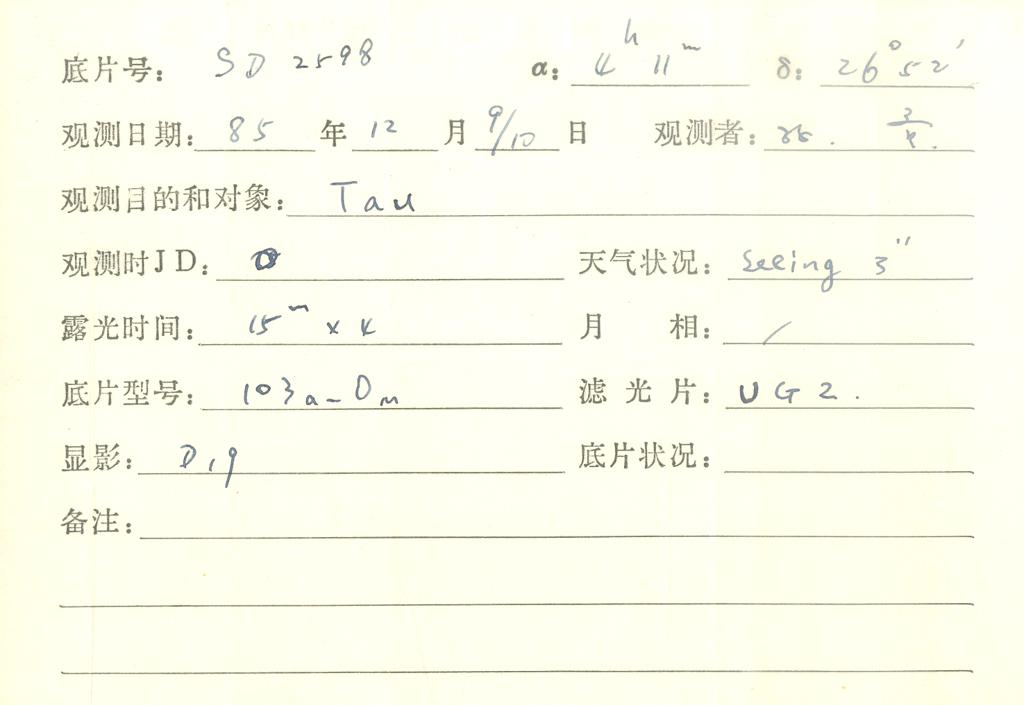 底片号： SD 2598 α： 4h 11m δ： 26° 52′
观测日期： 85 年 12 月 9/10 日 观测者：
观测目的和对象： Tau
观测时JD： 天气状况： Seeing 3″
露光时间： 15m × 4 月 相： /
底片型号： 103a-O 滤光片： UG2.
显影： D19 底片状况：
备注：